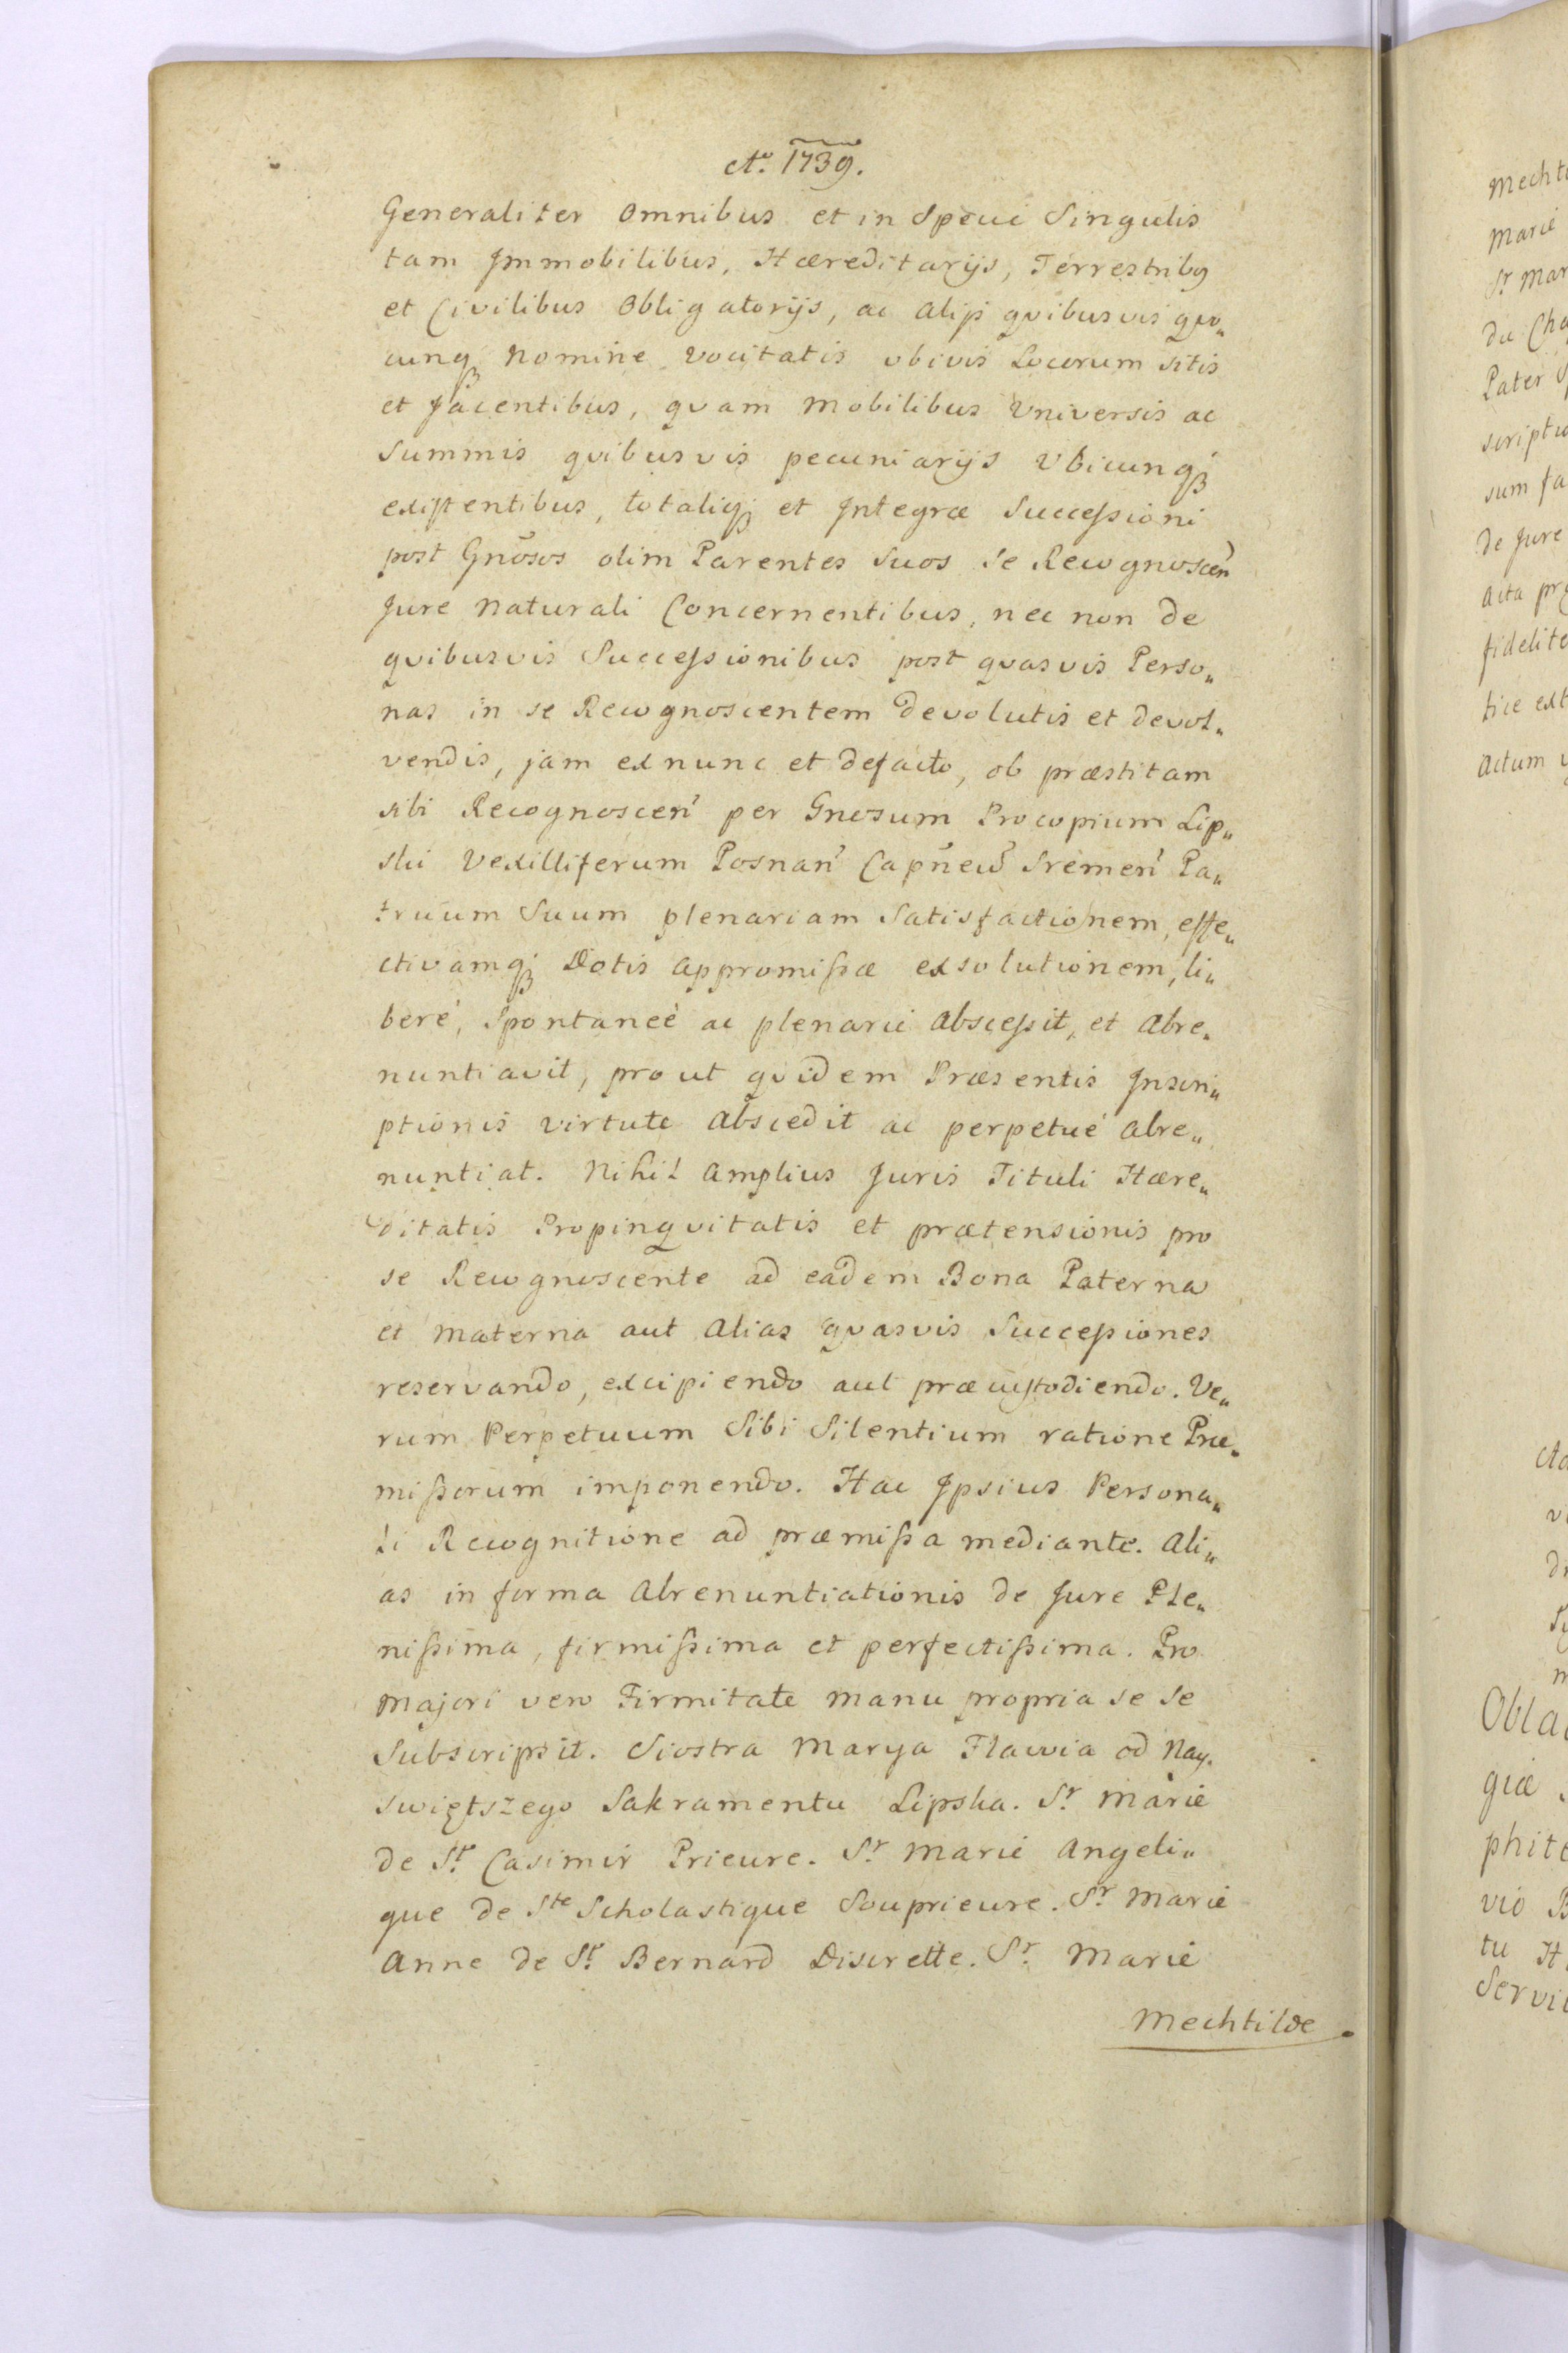 Ao. 1739.
Generaliter Omnibus et in Specie Singulis
tam Immobilibus, Hæreditarijs, Terrestribq
et Civilibus Obligatorijs, ac alijs quibusvis quo„
cunqꝫ nomine vocitatis ubivis Locorum sitis
et Jacentibus, quam mobilibus Universis ac
Summis quibusvis pecuniarijs Ubicunqꝫ
existentibus, totaliqꝫ et Integræ Successioni
post Gnõsos olim Parentes Suos Se Recognoscen̄
Jure naturali Concernentibus, nec non de
quibusvis Successionibus post quasvis Perso„
nas in se Recognoscentem devolutis et devol„
vendis, jam ex nunc et defacto, ob præstitam
sibi Recognoscen̄ per Gnosum Procopium Lip„
ski Vexilliferum Posnan̄ Capn̄eū Sremen̄ Pa„
truum Suum plenariam Satisfactionem, effe„
ctivamqꝫ Dotis appromissæ exsolutionem, li„
berè, Spontaneè ac plenarie Abscessit, et Abre„
nuntiavit, prout quidem Præsentis Inscri„
ptionis virtute Abscedit ac perpetuè abre„
nuntiat. Nihil amplius Juris Tituli Hære„
ditatis Propinquitatis et prætensionis pro
se Recognoscente ad eadem Bona Paterna
et materna aut Alias quasvis Successiones
reservando, excipiendo aut præcustodiendo. Ve„
rum Perpetuum Sibi Silentium ratione Præ„
missorum imponendo. Hac Ipsius Persona„
li Recognitione ad præmissa mediante. Ali„
as in forma Abrenuntiationis de Jure Ple„
nissima, firmissima et perfectissima. Pro
majori vero Firmitate manu propria se se
Subscripsit. Siostra Marya Flawia od Nay.
swiętszego Sakramentu Lipska. Sr. Marie
de St. Casimir Prieure. Sr. Marie Angeli„
que de Ste Scholastique Souprieure. Sr. Marie
Anne de St. Bernard Discrette. Sr. Marie
Mechtilde
Marie
Sr Mar
du Cha
Pater
scriptio
sum fa
de Jure
Acta
fidelite
Actum
Obla
giæ
phite
vio B
tu H
Servi